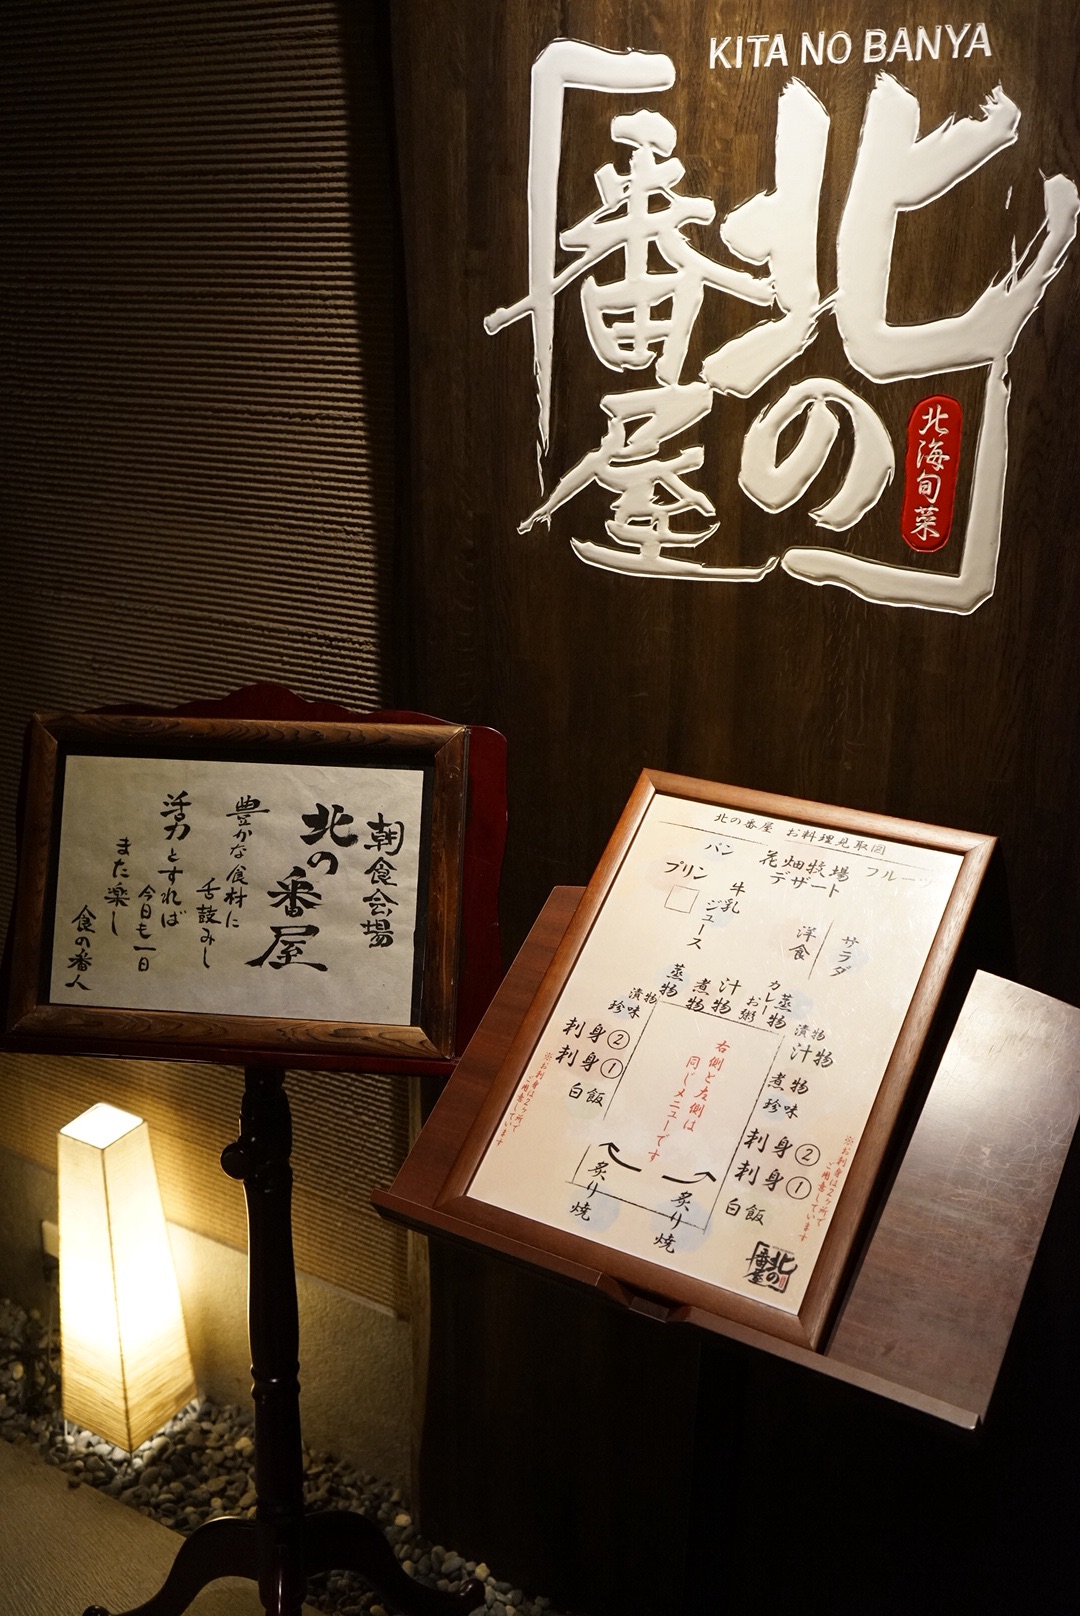 KITA NO BANYA
北の
番屋
北海旬菜
朝食会場
北の番屋
豊かな食材に
舌鼓みし
活力とすれば
今日も一日
また楽し
食の番人
北の番屋 お料理見取図
パン
花畑牧場
デザート
フルーツ
プリン
牛乳
ジュース
洋食
サラダ
蒸物
煮物
汁物
お粥
カレー
蒸物
漬物
珍味
漬物
汁物
刺身②
刺身①
白飯
煮物
珍味
刺身②
刺身①
白飯
右側と左側は
同じメニューです
※お刺身は2ヶ所で
ご用意しています
※お刺身は2ヶ所で
ご用意しています
炙り焼
炙り焼
北の
番屋